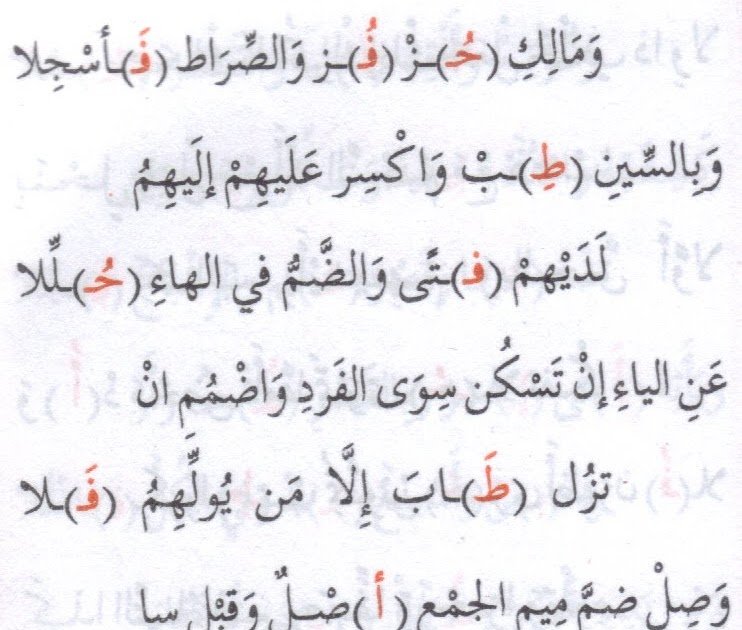 وَمَالِكِ (حُـ)ـزْ (فُـ)ـز وَالصِّرَاط (فَـ)ـأسْجِلا
وَبِالسِّينِ (طِـ)ـبْ وَاكْسِر عَلَيهِمْ إلَيهِمُ
لَدَيْهِمْ (فـ)ـتًى وَالضَّمُّ في الهاءِ (حُـ)ـلِّلا
عَنِ الياءِ إنْ تَسْكُن سِوَى الفَردِ وَاضْمُمِ انْ
تزُل (طَـ)ـابَ إِلَّا مَن يُولِّهِمُ (فَـ)ـلا
وَصِلْ ضمَّ مِيم الجمْع (أ)صْـلٌ وَقبْل سا